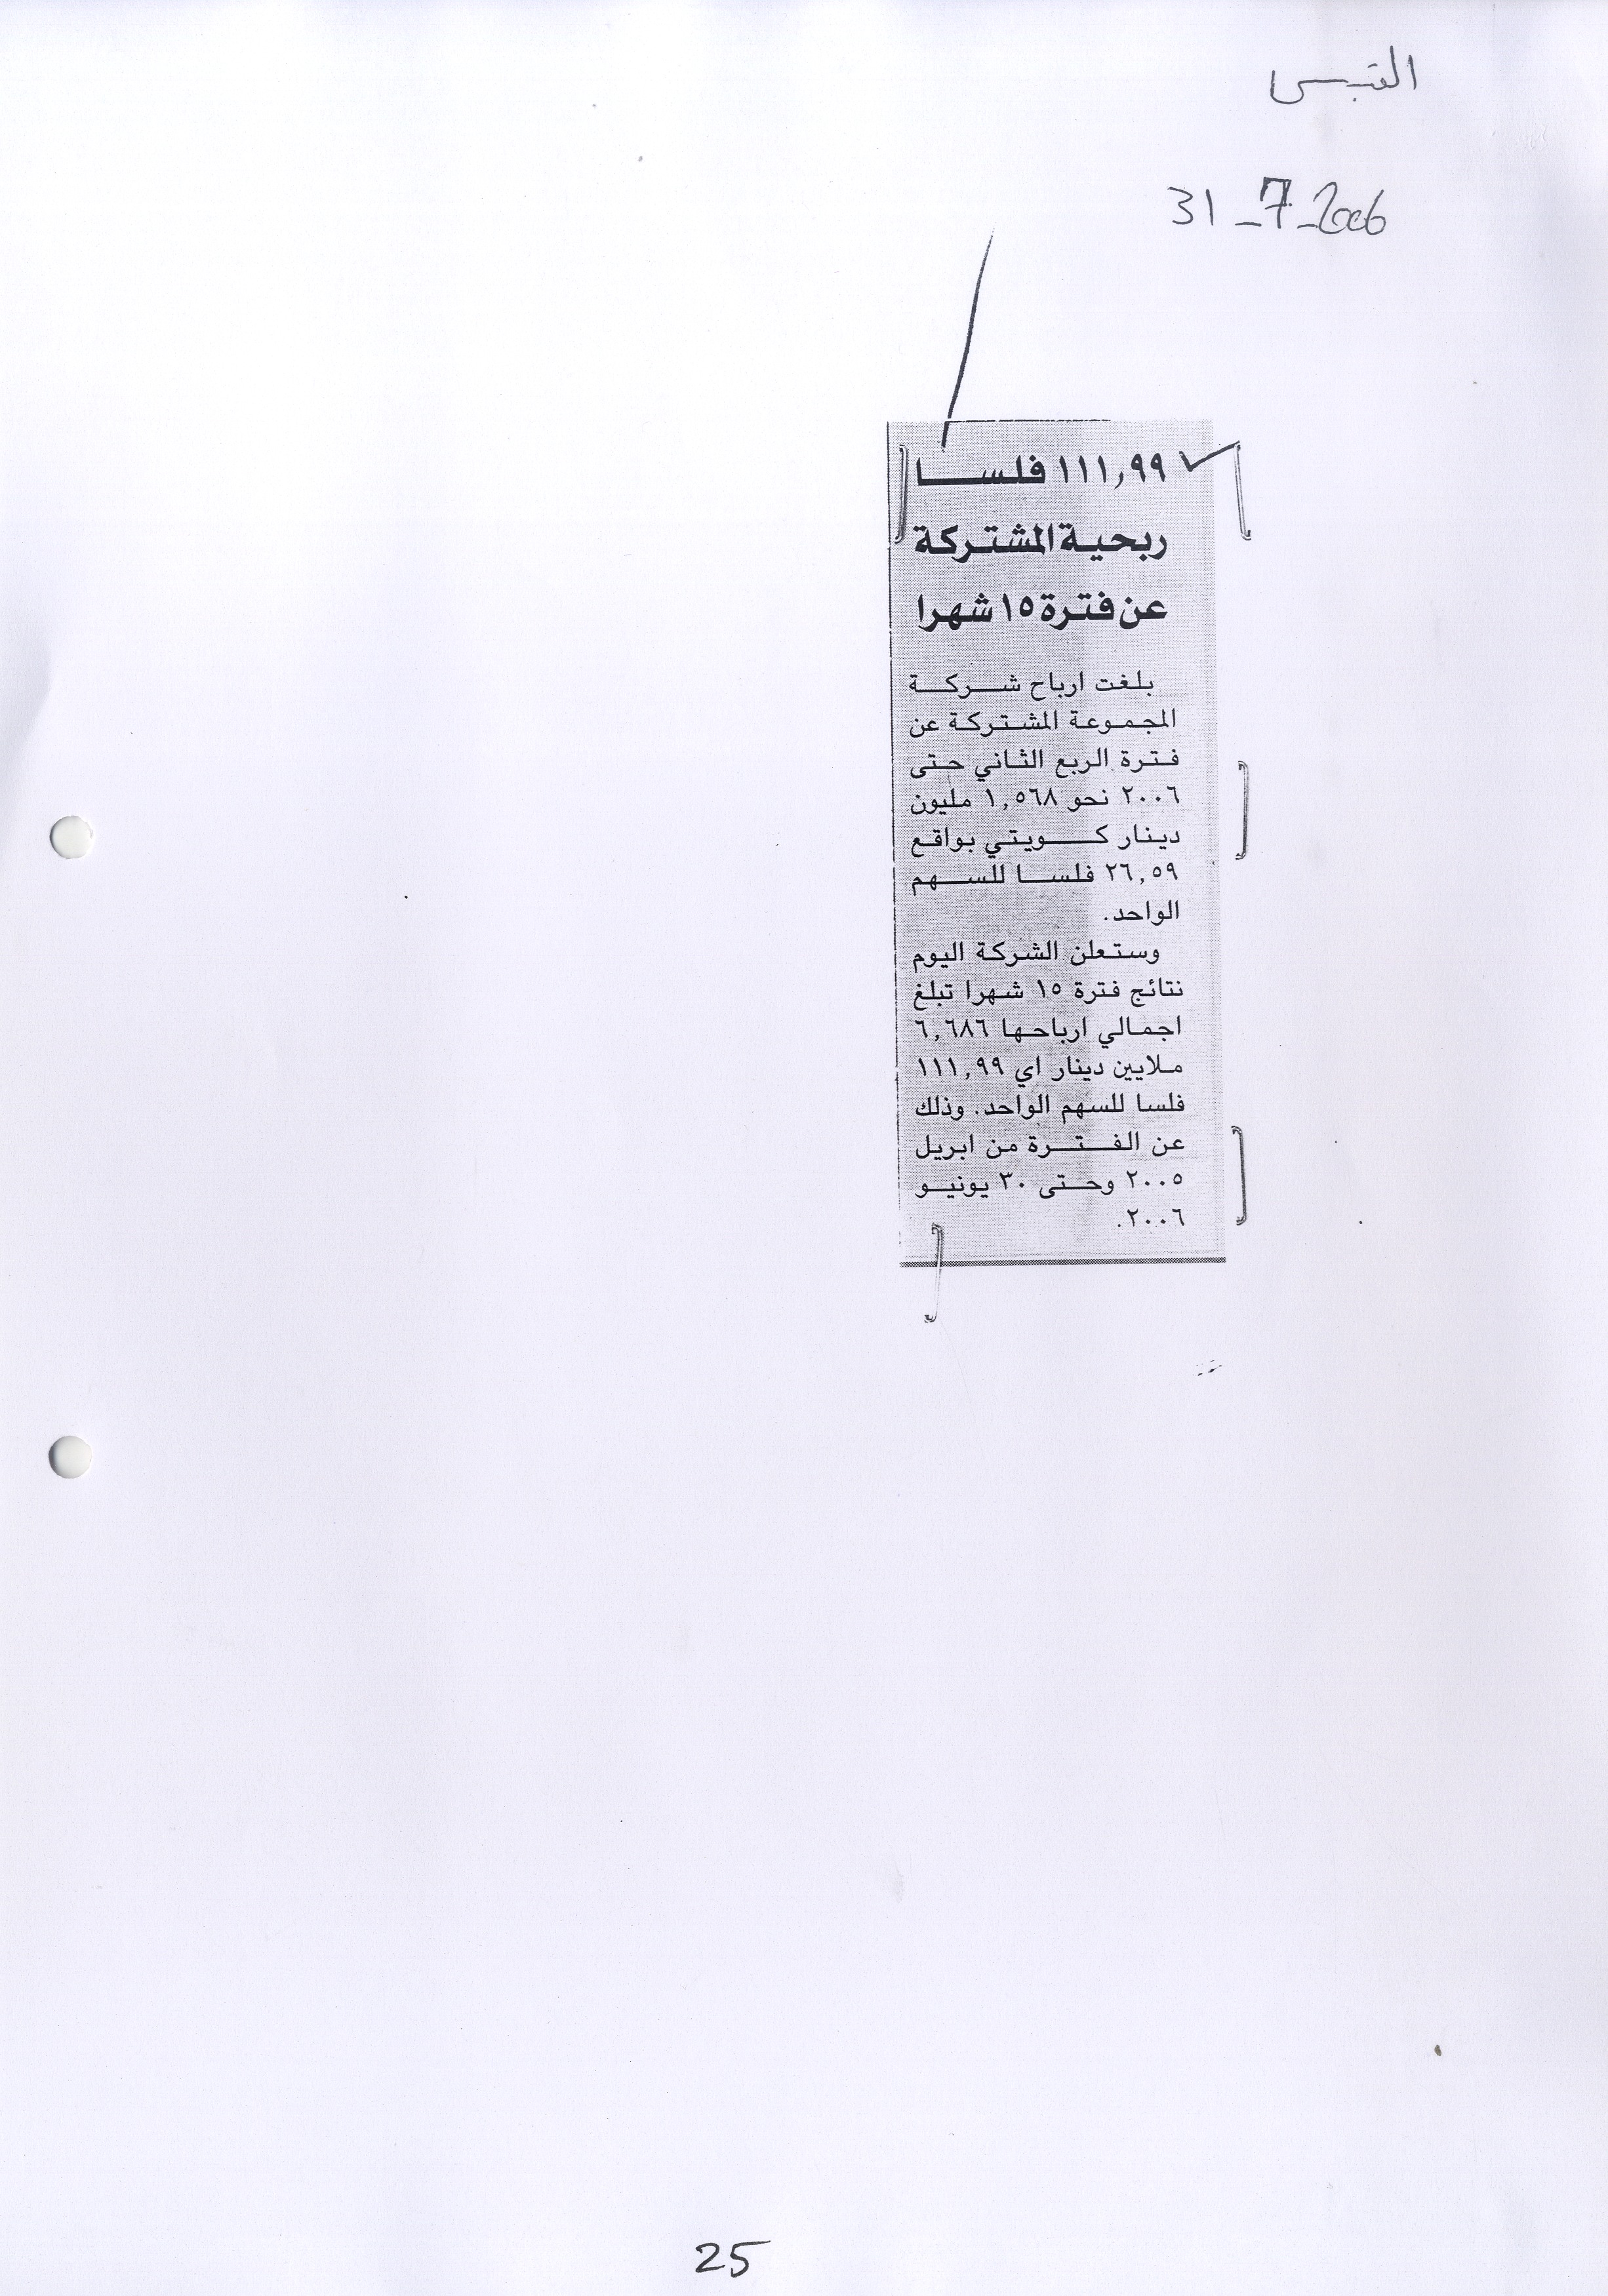 القبس
31-7-2006
١١١,٩٩ فلسا
ربحية المشتركة
عن فترة ١٥ شهرا
بلغت ارباح شركة
المجموعة المشتركة عن
فترة الربع الثاني حتى
٢٠٠٦ نحو ١,٥٦٨ مليون
دينار كويتي بواقع
٢٦,٥٩ فلسا للسهم
الواحد.
وستعلن الشركة اليوم
نتائج فترة ١٥ شهرا تبلغ
اجمالي ارباحها ٦,٦٨٦
ملايين دينار اي ١١١,٩٩
فلسا للسهم الواحد. وذلك
عن الفترة من ابريل
٢٠٠٥ وحتى ٣٠ يونيو
٢٠٠٦.
25